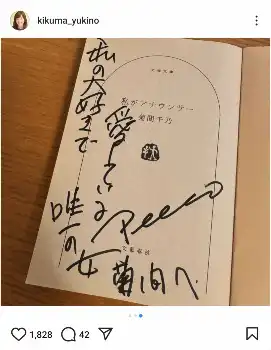 kikuma_yukino
私の大好きで
愛している
唯一の女
菊間へ
文春文庫
私がアナウンサー
菊間千乃
文藝春秋
1,828
42